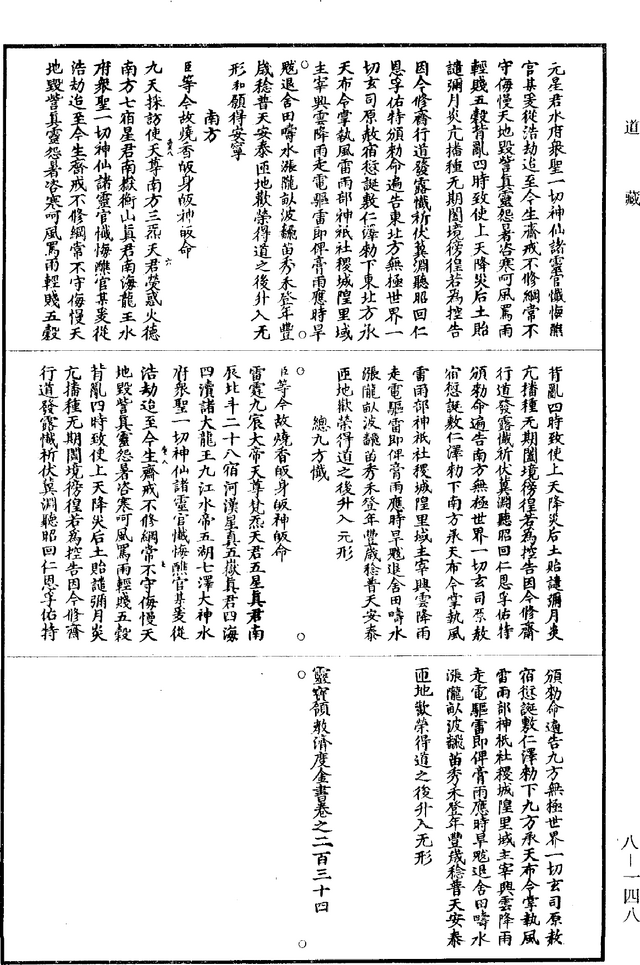 道藏
元星君水府衆聖一切神仙諸靈官懺悔醮
官某䒳從浩劫迨至今生齋戒不修綱常不
守侮慢天地毀訾真靈怨暑咨寒呵風罵雨
輕賤五穀背亂四時致使上天降災后土貽
譴彌月炎亢播種无期闔境徬徨若為控告
因今修齋行道發露懺祈伏冀淵聽昭回仁
恩孚佑特頒勑命遍告東北方無極世界一
切玄司原赦宿愆誕敷仁澤勑下東北方承
天布令掌執風雷雨部神祇社稷城隍里域
主宰興雲降雨走電驅雷即俾膏雨應時旱
魃退舍田疇水漲隴畝波飜苗秀禾登年豐
歲稔普天安泰匝地歡榮得道之後升入无
形和願得安寧
南方
臣等今故燒香皈身皈神皈命
九天採訪使天尊南方三炁天君熒惑火德
南方七宿星君南嶽衡山真君南海龍王水
府衆聖一切神仙諸靈官懺悔醮官某䒳從
浩劫迨至今生齋戒不修綱常不守侮慢天
地毀訾真靈怨暑咨寒呵風罵雨輕賤五穀
背亂四時致使上天降災后土貽譴彌月炎
亢播種无期闔境徬徨若為控告因今修齋
行道發露懺祈伏冀淵聽昭回仁恩孚佑特
頒勑命遍告南方無極世界一切玄司原赦
宿愆誕敷仁澤勑下南方承天布令掌執風
雷雨部神祇社稷城隍里域主宰興雲降雨
走電驅雷即俾膏雨應時旱魃退舍田疇水
漲隴畝波飜苗秀禾登年豐歲稔普天安泰
匝地歡榮得道之後升入无形
總九方懺
臣等今故燒香皈身皈神皈命
雷霆九宸大帝天尊梵炁天君五星真君南
辰北斗二十八宿河漢星真五嶽真君四海
四瀆諸大龍王九江水帝五湖七澤大神水
府衆聖一切神仙諸靈官懺悔醮官某䒳從
浩劫迨至今生齋戒不修綱常不守侮慢天
地毀訾真靈怨暑咨寒呵風罵雨輕賤五穀
背亂四時致使上天降災后土貽譴彌月炎
亢播種无期闔境徬徨若為控告因今修齋
行道發露懺祈伏冀淵聽昭回仁恩孚佑特
頒勑命遍告九方無極世界一切玄司原赦
宿愆誕敷仁澤勑下九方承天布令掌執風
雷雨部神祇社稷城隍里域主宰興雲降雨
走電驅雷即俾膏雨應時旱魃退舍田疇水
漲隴畝波飜苗秀禾登年豐歲稔普天安泰
匝地歡榮得道之後升入无形
靈寶領教濟度金書卷之二百三十四
八－一四八